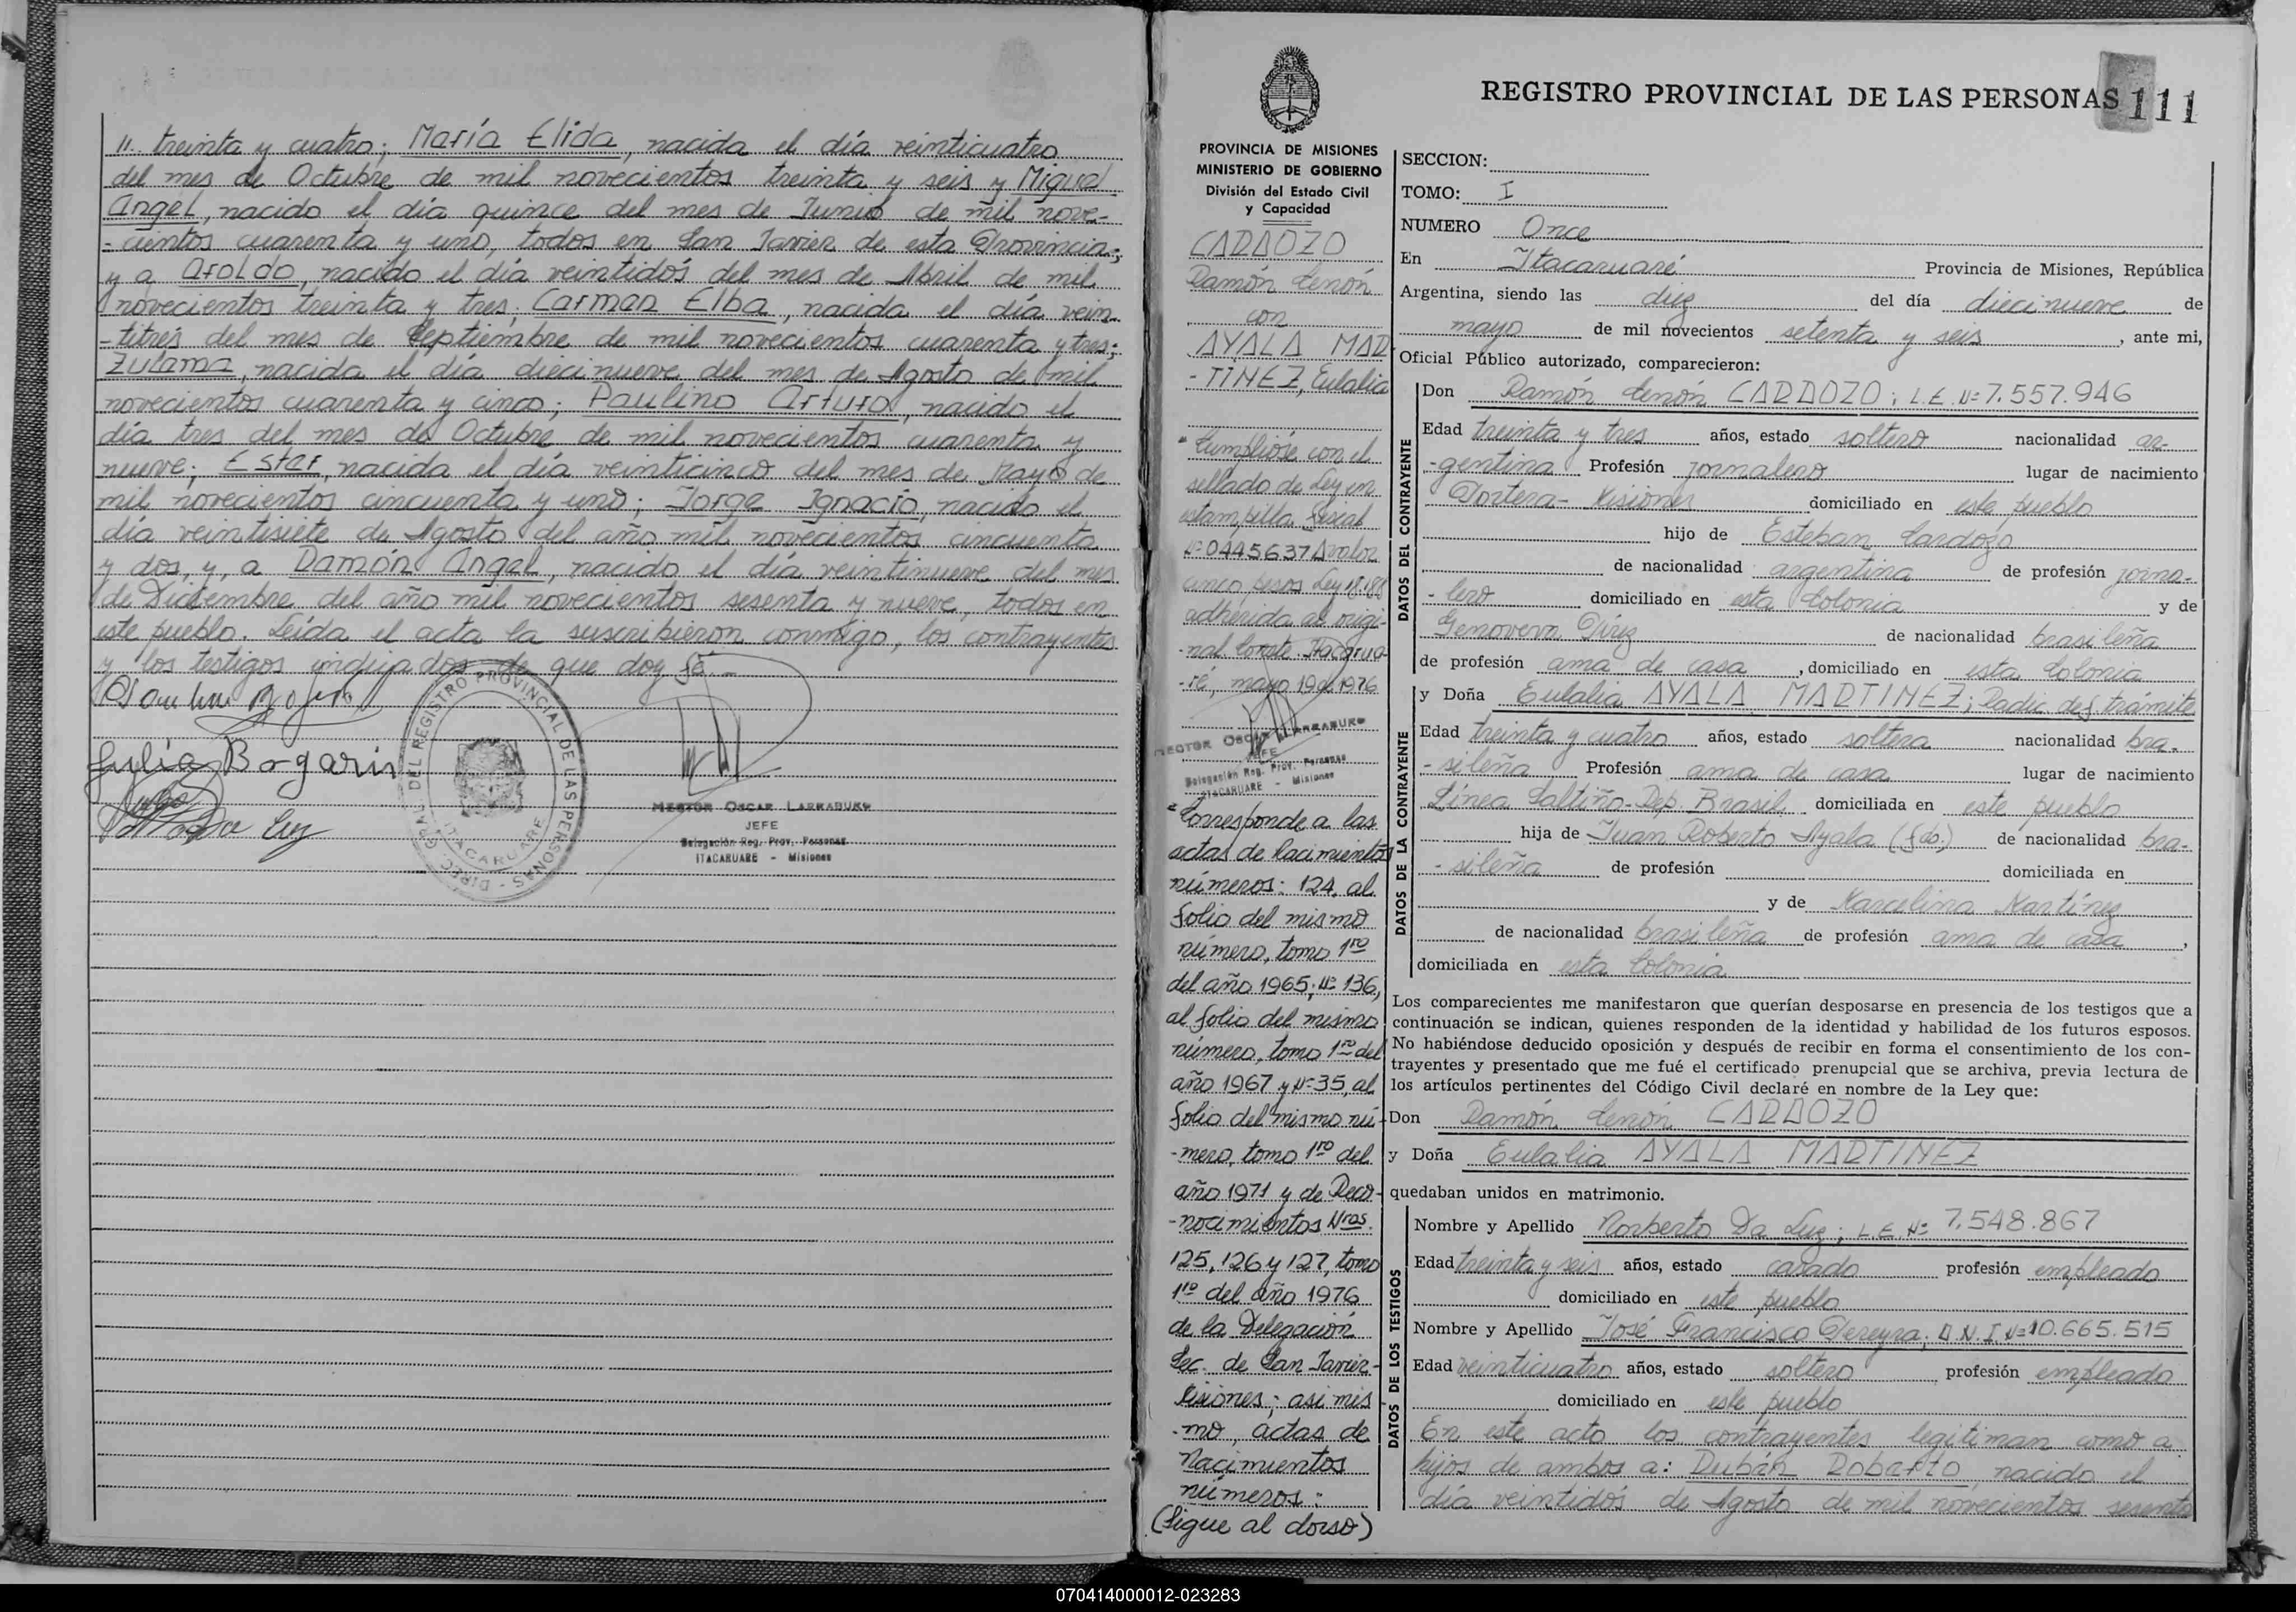 " treinta y cuatro; María Elida, nacida el día veinticuatro
del mes de Octubre de mil novecientos treinta y seis y Miguel
Angel, nacido el día quince del mes de Junio de mil nove-
-cientos cuarenta y uno, todos en San Javier de esta Provincia;
y a Aroldo, nacido el día veintidós del mes de Abril de mil
novecientos treinta y tres; Carmen Elba, nacida el día vein-
-titrés del mes de Septiembre de mil novecientos cuarenta y tres;
Zulema, nacida el día diecinueve del mes de Agosto de mil
novecientos cuarenta y cinco; Paulino Arturo, nacido el
día tres del mes de Octubre de mil novecientos cuarenta y
nueve; Ester, nacida el día veinticinco del mes de Mayo de
mil novecientos cincuenta y uno; Jorge Ignacio, nacido el
día veintisiete de Agosto del año mil novecientos cincuenta
y dos, y, a Ramón Angel, nacido el día veintinueve del mes
de Diciembre del año mil novecientos sesenta y nueve, todos en
este pueblo. Leída el acta la suscribieron conmigo, los contrayentes
y los testigos indicados de que doy fé.-
Julia Bogarin
DIREC. GRAL. DEL REGISTRO PROVINCIAL DE LAS PERSONAS
ITACARUARE
HECTOR OSCAR LARRABURU
JEFE
Delegación Reg. Prov. Personas
ITACARUARE - Misiones
PROVINCIA DE MISIONES
MINISTERIO DE GOBIERNO
División del Estado Civil
y Capacidad
CARDOZO
Ramón Zenón
con
AYALA MAR
-TINEZ, Eulalia
"Cumplióse con el
sellado de Ley en
estampilla fiscal
Nº 0445637 A valor
cinco pesos Ley 18.188
adherida al origi-
-nal. Conste. Itacarua-
-ré, mayo 19 de 1976
HECTOR OSCAR LARRABURU
JEFE
Delegación Reg. Prov. Personas
ITACARUARE - Misiones
"Corresponde a las
actas de Nacimientos
números: 124, al
folio del mismo
número, tomo 1ro
del año 1965; Nº 136,
al folio del mismo
número, tomo 1ro del
año 1967 y Nº 35, al
folio del mismo nú-
-mero, tomo 1ro del
año 1971 y de Reco-
-nocimientos Nros.
125, 126 y 127, tomo
1ro del año 1976
de la Delegación
Sec. de San Javier-
Misiones; asi mis
-mo, actas de
Nacimientos
números:
(Sigue al dorso)
REGISTRO PROVINCIAL DE LAS PERSONAS 111
SECCION:
TOMO: I
NUMERO Once
En Itacaruaré Provincia de Misiones, República
Argentina, siendo las diez del día diecinueve de
mayo de mil novecientos setenta y seis, ante mi,
Oficial Público autorizado, comparecieron:
DATOS DEL CONTRAYENTE
Don Ramón Zenón CARDOZO; L.E. Nº 7.557.946
Edad treinta y tres años, estado soltero nacionalidad ar-
-gentina Profesión jornalero lugar de nacimiento
Portera- Misiones domiciliado en este pueblo
hijo de Esteban Cardozo
de nacionalidad argentina de profesión jorna-
-lero domiciliado en esta Colonia y de
Genoveva Píriz de nacionalidad brasileña
de profesión ama de casa, domiciliado en esta Colonia
DATOS DE LA CONTRAYENTE
y Doña Eulalia AYALA MARTINEZ; Radic. def. trámite
Edad treinta y cuatro años, estado soltera nacionalidad bra-
-sileña Profesión ama de casa lugar de nacimiento
Línea Saltiño-Rep. Brasil domiciliada en este pueblo
hija de Juan Roberto Ayala (fdo.) de nacionalidad bra-
-sileña de profesión domiciliada en
y de Marcelina Martínez
de nacionalidad brasileña de profesión ama de casa,
domiciliada en esta Colonia
Los comparecientes me manifestaron que querían desposarse en presencia de los testigos que a
continuación se indican, quienes responden de la identidad y habilidad de los futuros esposos.
No habiéndose deducido oposición y después de recibir en forma el consentimiento de los con-
trayentes y presentado que me fué el certificado prenupcial que se archiva, previa lectura de
los artículos pertinentes del Código Civil declaré en nombre de la Ley que:
Don Ramón Zenón CARDOZO
y Doña Eulalia AYALA MARTINEZ
quedaban unidos en matrimonio.
DATOS DE LOS TESTIGOS
Nombre y Apellido Norberto Da Luz; L.E. Nº 7.548.867
Edad treinta y seis años, estado casado profesión empleado
domiciliado en este pueblo
Nombre y Apellido José Francisco Pereyra; D.N.I. Nº 10.665.515
Edad veinticuatro años, estado soltero profesión empleado
domiciliado en este pueblo
En este acto los contrayentes legitiman como a
hijos de ambos a: Rubén Roberto, nacido el
día veintidós de Agosto de mil novecientos sesenta
070414000012-023283